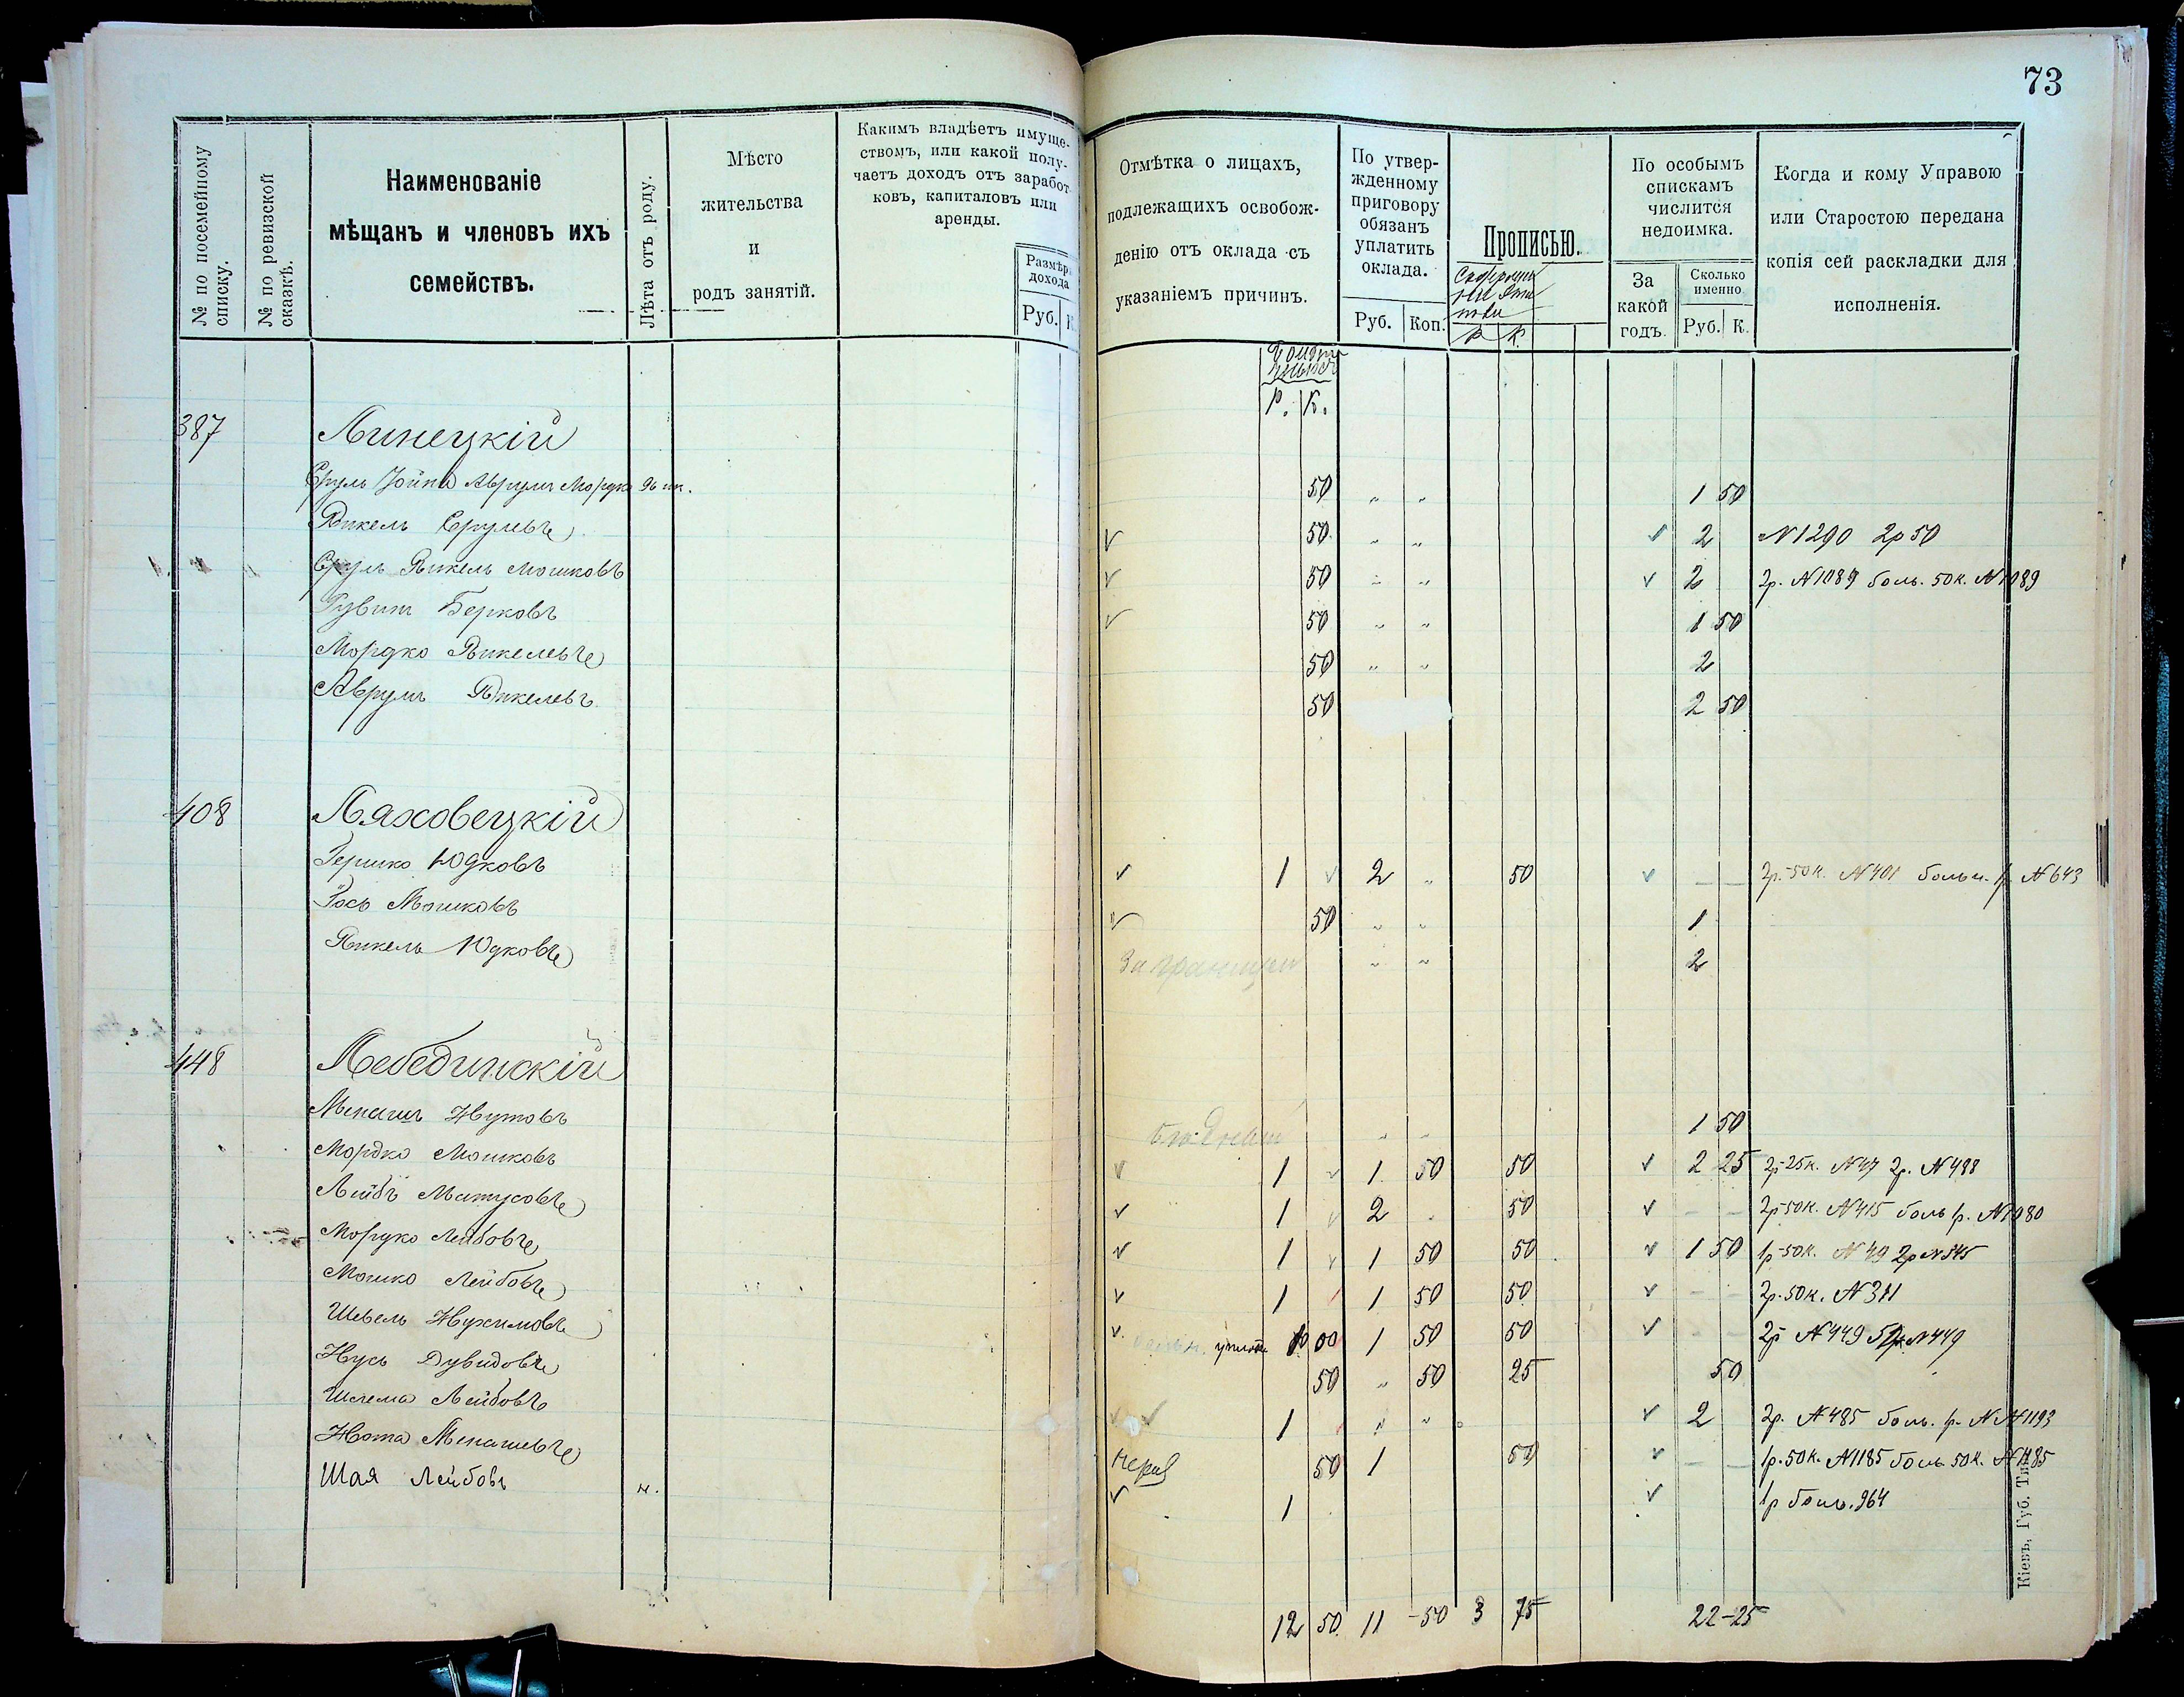 73
№ по посемейному списку.
№ по ревизской сказкѣ.
Наименованіе
мѣщанъ и членовъ ихъ
семействъ.
Лѣта отъ роду.
Мѣсто
жительства
и
родъ занятій.
Какимъ владѣетъ имуще-
ствомъ, или какой полу-
чаетъ доходъ отъ заработ-
ковъ, капиталовъ или
аренды.
Размѣръ
дохода
Руб. К.
Отмѣтка о лицахъ,
подлежащихъ освобож-
денію отъ оклада съ
указаніемъ причинъ.
По утвер-
жденному
приговору
обязанъ
уплатить
оклада.
Руб. Коп.
Прописью.
Р К.
По особымъ
спискамъ
числится
недоимка.
За
какой
годъ.
Сколько
именно
Руб. К.
Когда и кому Управою
или Старостою передана
копія сей раскладки для
исполненія.
Р. К.
387 Линецкій
Сруль Іойна Аврумъ Мордко 50 " " 1 50
Янкель Срулевъ 50 " " 2 N 1290 2р 50
Сруль Янкель Мошковъ 50 " " 2 2р. N 1089 боль. 50к. N 1089
Рувинъ Берковъ 50 " " 1 50
Мордко Янкелевъ 50 " " 2
Аврумъ Янкелевъ 50 2 50
408 Ляховецкій
Гершко Юдковъ 1 2 " 50 — — 2р.-50к. N 401 больн. 1р N 643
Іось Мошковъ 50 " " 1
Янкель Юдковъ За границей " " 2
448 Лебединскій
Менашъ Нутовъ " " 1 50
Мордко Мошковъ 1 1 50 50 2 25 2р-25к. N 47 2р. N 488
Лейбъ Матусовъ 1 2 50 — — 2р-50к. N 415 боль 1р. N 1080
Мордко Лейбовъ 1 1 50 50 1 50 1р-50к. N 49 2р N 345
Мошко Лейбовъ 1 1 50 50 — — 2р.50к. N 311
Шевель Нухимовъ 00 1 50 50 — — 2р N 449 N 449
Нусь Дувидовъ 50 " 50 25 50
Шлема Лейбовъ 1 " " 2 2р. N 485 боль. 1р. N 1193
Нота Менашевъ 50 1 50 — — 1р.50к. N 1185 боль 50к. N 1185
Шая Лейбовъ н. 1 1р боль. 964
12 50 11 -50 3 75 22-25
Кіевъ, Губ. Тип.